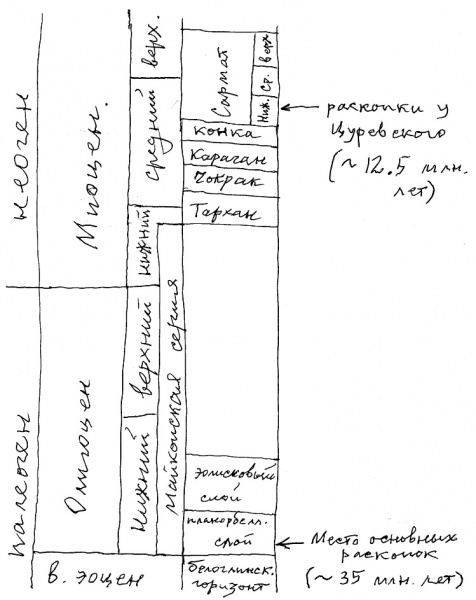 неоген
Миоцен.
верх.
средний
нижний
Сармат
верх
Ср.
Ниж.
конка
Караган
Чокрак
Тархан
раскопки у
Цуревского
(~12.5 млн.
лет)
палеоген
Олигоцен
верхний
нижний
Майкопская серия
полисковый
слой
планорбелл.
слой
Место основных
раскопок
(~35 млн. лет)
в. эоцен
белоглинск.
горизонт